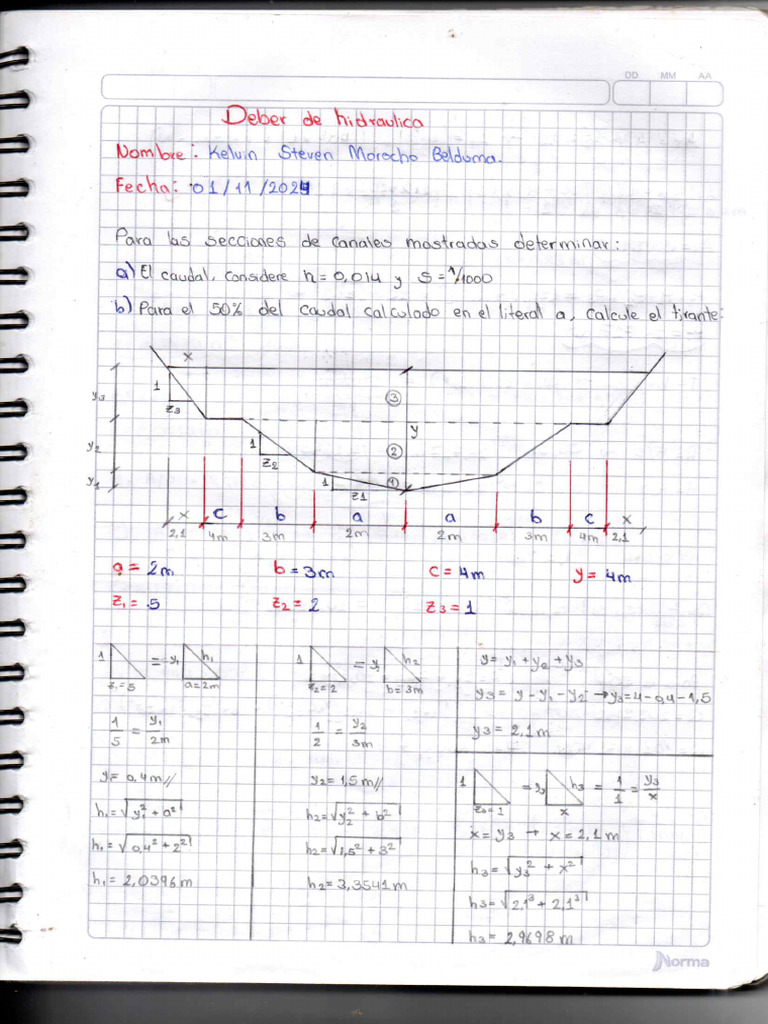 DD MM AA
Deber de hidraulica
Nombre: Kelvin Steven Morocho Belduma.
Fecha: 01/11/2024
Para las secciones de canales mostradas determinar:
a) El caudal, considere n=0,014 y S=1/1000
b) Para el 50% del caudal calculado en el literal a, calcule el tirante:
x
1
z3
y3
3
y
1
z2
y2
2
1
z1
y1
1
x c b a a b c x
2,1 4m 3m 2m 2m 3m 4m 2,1
a = 2m b = 3m c = 4m y = 4m
z1 = 5 z2 = 2 z3 = 1
1 = y1 h1
z1=5 a=2m
1/5 = y1/2m
y1= 0,4m//
h1= √y1² + a²
h1= √0,4² + 2²
h1= 2,0396m
1 = y2 h2
z2=2 b=3m
1/2 = y2/3m
y2= 1,5m//
h2= √y2² + b²
h2= √1,5² + 3²
h2= 3,3541m
y= y1 + y2 + y3
y3= y - y1 - y2 → y3=4-0,4-1,5
y3= 2,1m
1 = y3 h3 = 1/1 = y3/x
z3=1 x
x= y3 → x= 2,1m
h3= √y3² + x²
h3= √2,1³ + 2,1³
h3= 2,9698m
Norma